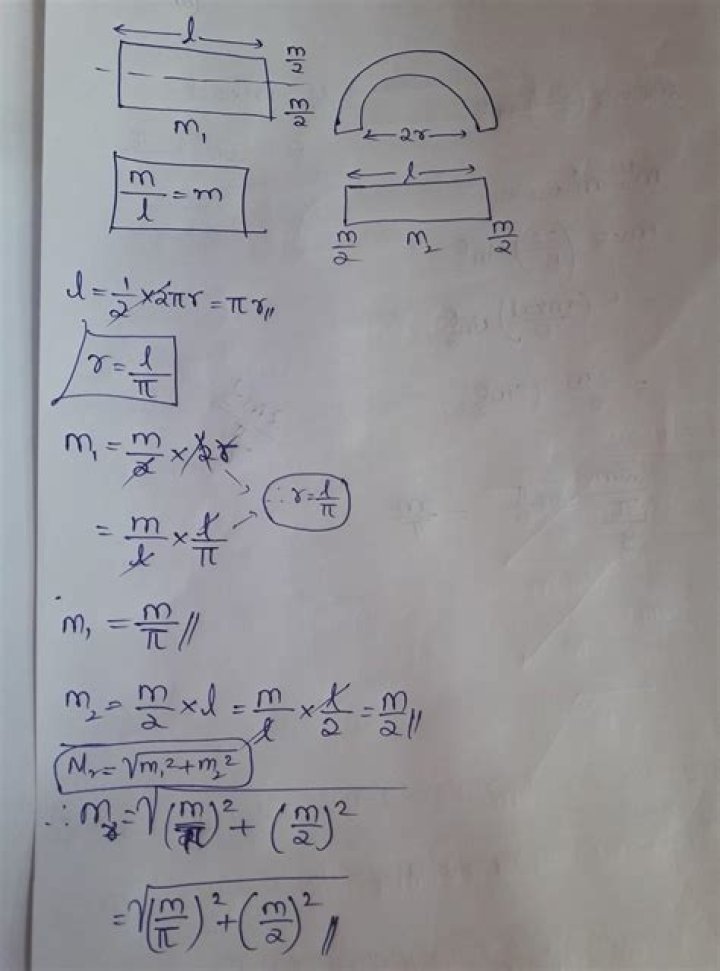 l
m/2
m/2
m₁
2r
m/l = m
l
m/2 m₂ m/2
l = 1/2 × 2πr = πr//
r = l/π
m₁ = m/2 × 2r
∴ r = l/π
= m/l × l/π
m₁ = m/π //
m₂ = m/2 × l = m/l × l/2 = m/2 //
Mr = √m₁² + m₂²
∴ mr = √(m/π)² + (m/2)²
= √(m/π)² + (m/2)² //